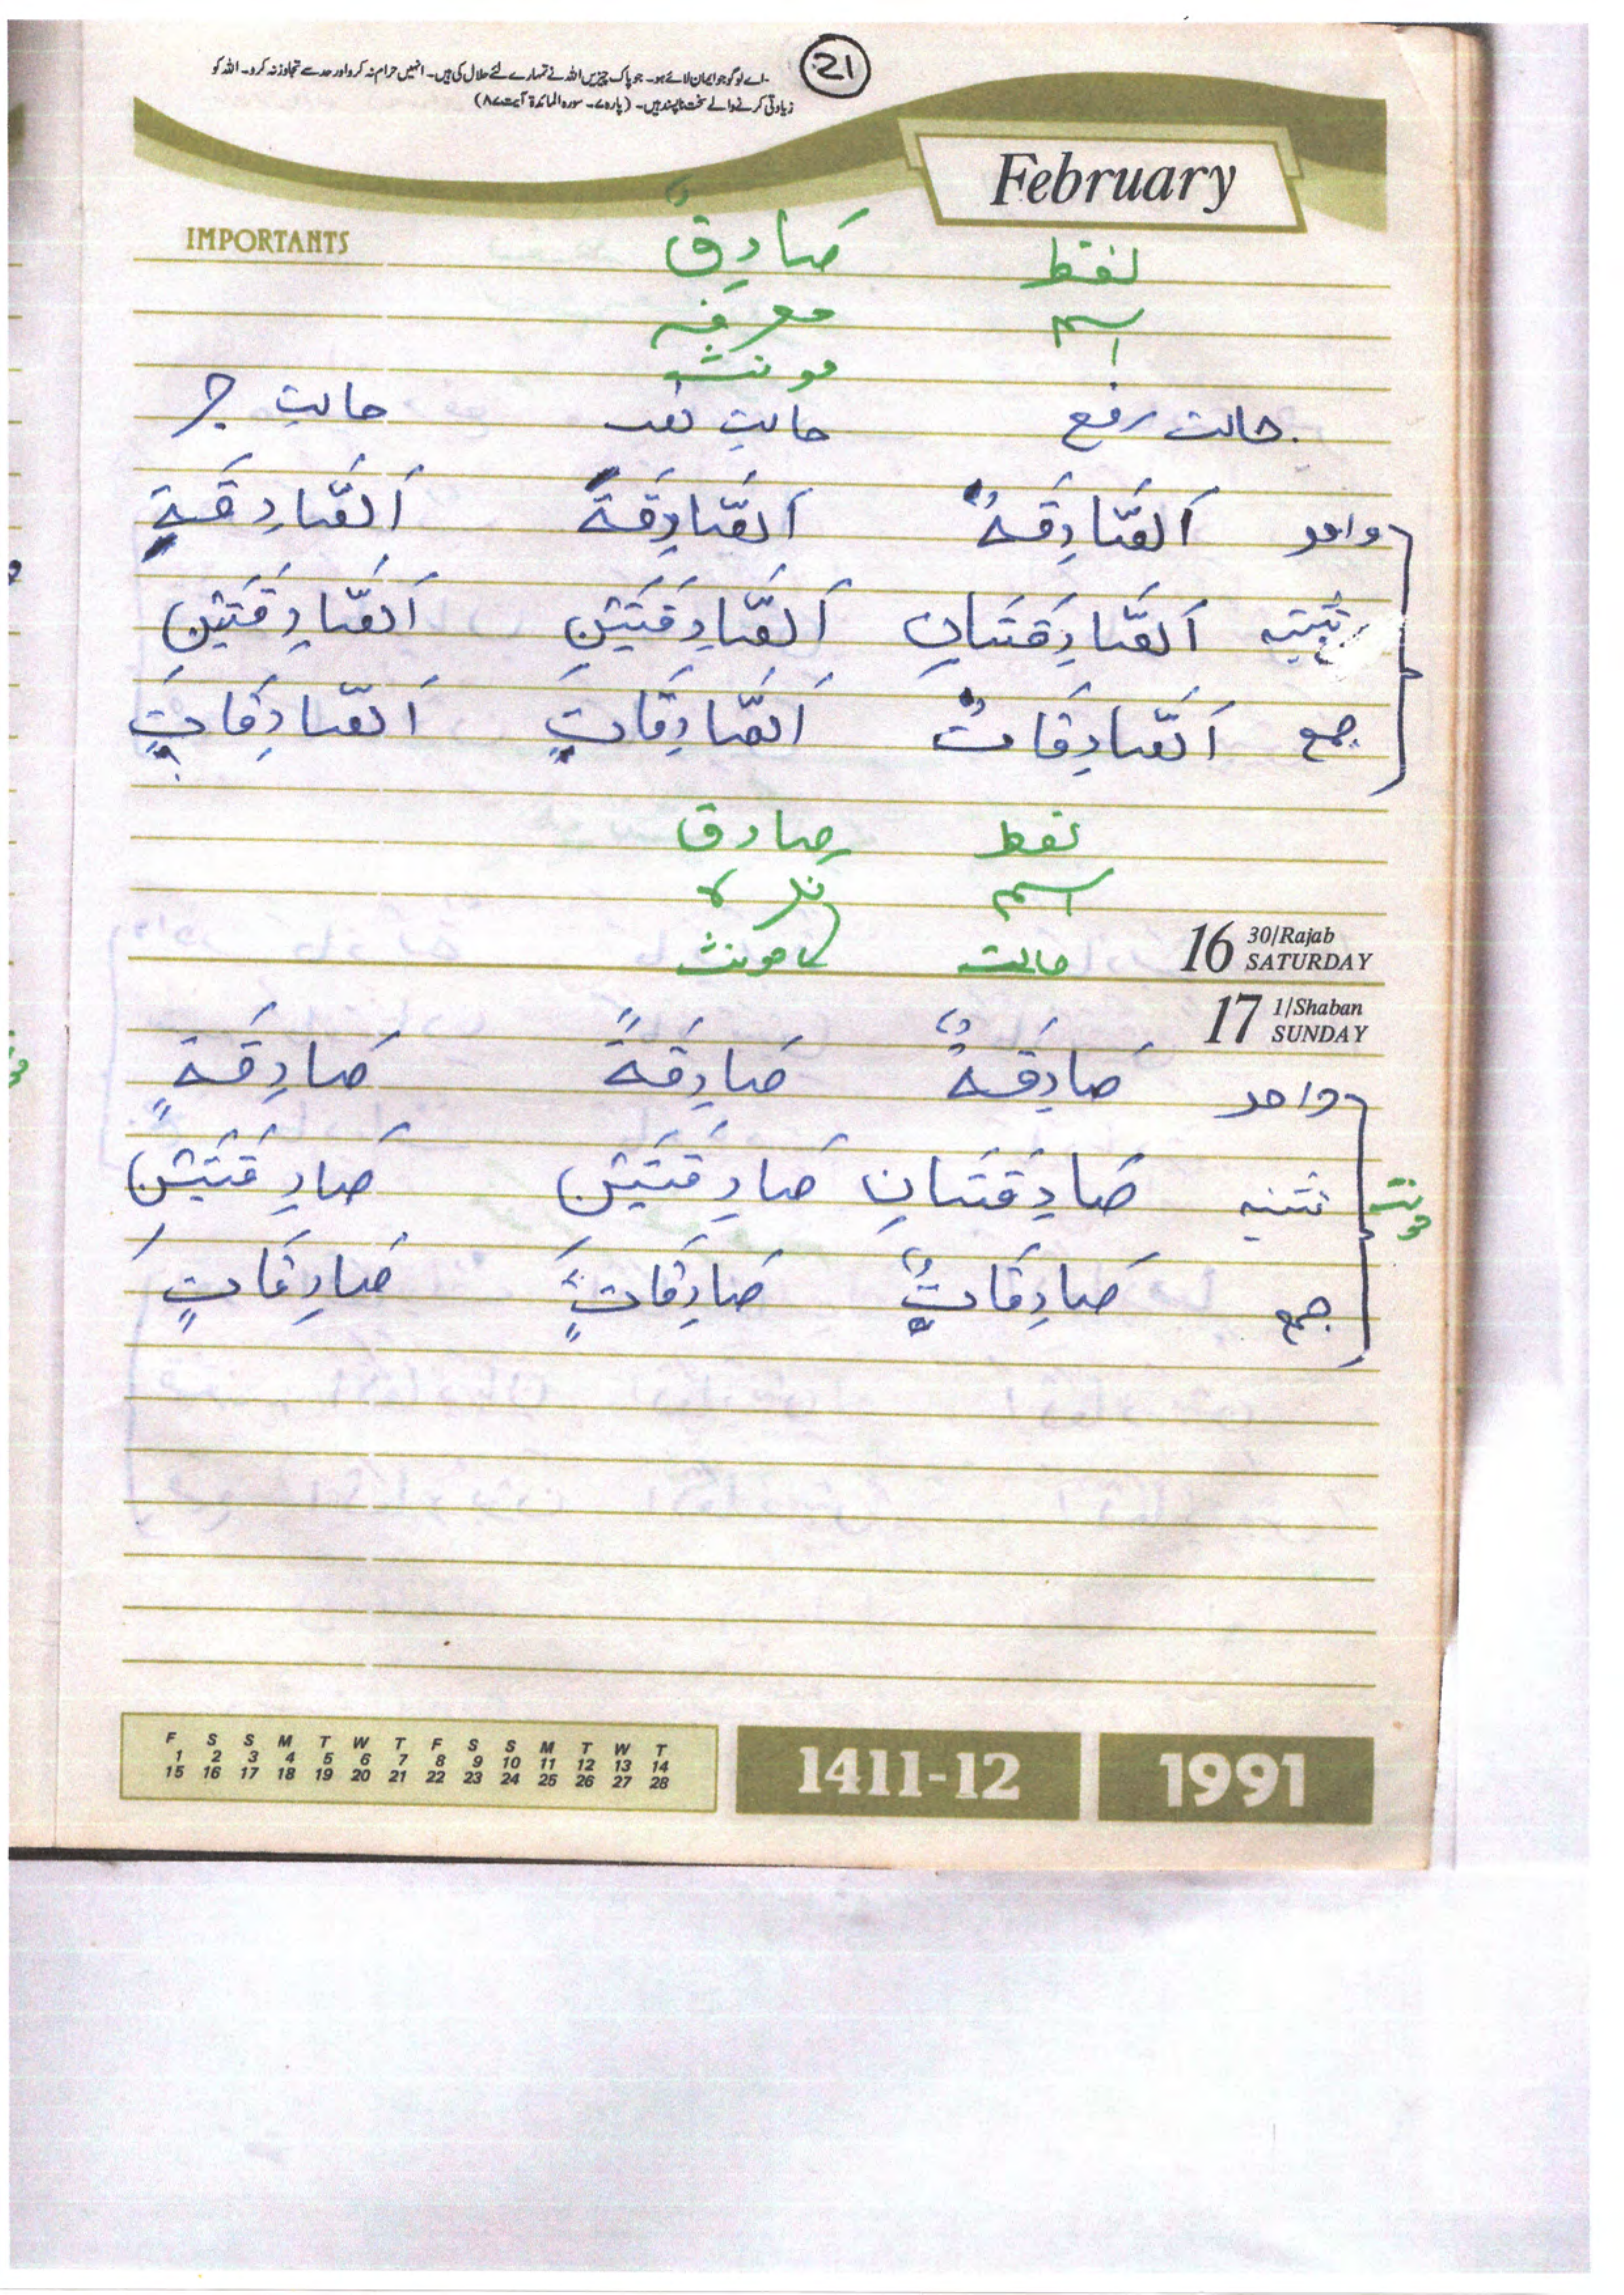 21
اے لوگو جو ایمان لائے ہو۔ جو پاک چیزیں اللہ نے تمہارے لئے حلال کی ہیں۔ انہیں حرام نہ کرو اور حد سے تجاوز نہ کرو۔ اللہ کو
زیادتی کرنے والے سخت ناپسند ہیں۔ (پارہ ۷۔ سورہ المائدۃ آیت ۸۷)
February
IMPORTANTS
لفظ صَادِقٌ
اسم معرفہ
مونث
حالت رفع حالت نصب حالت جر
واحد اَلصَّادِقَةُ اَلصَّادِقَةَ اَلصَّادِقَةِ
تثنیہ اَلصَّادِقَتَانِ اَلصَّادِقَتَيْنِ اَلصَّادِقَتَيْنِ
جمع اَلصَّادِقَاتُ اَلصَّادِقَاتِ اَلصَّادِقَاتِ
لفظ صادق
اسم نکرہ
حالت مونث
16 30/Rajab SATURDAY
17 1/Shaban SUNDAY
واحد صَادِقَةٌ صَادِقَةً صَادِقَةٍ
مونث تثنیہ صَادِقَتَانِ صَادِقَتَيْنِ صَادِقَتَيْنِ
جمع صَادِقَاتٌ صَادِقَاتٍ صَادِقَاتٍ
F S S M T W T F S S M T W T
1 2 3 4 5 6 7 8 9 10 11 12 13 14
15 16 17 18 19 20 21 22 23 24 25 26 27 28
1411-12
1991